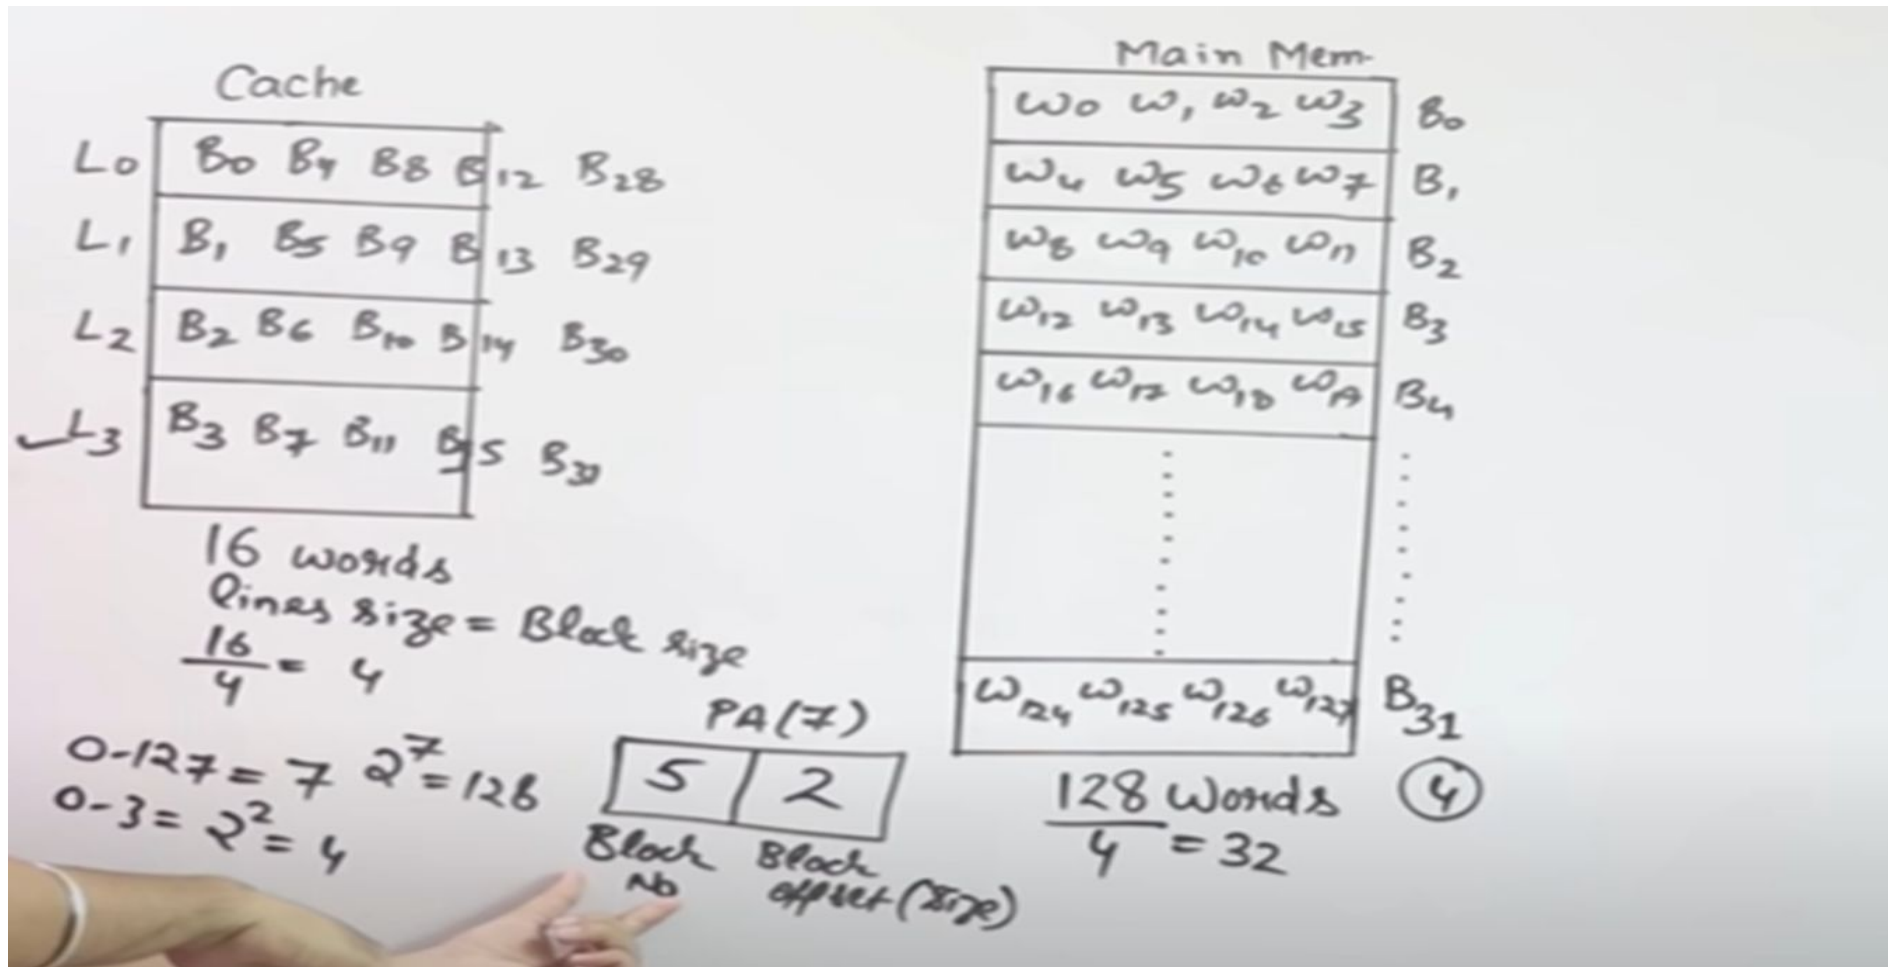 Cache
L0 B0 B4 B8 B12 B28
L1 B1 B5 B9 B13 B29
L2 B2 B6 B10 B14 B30
L3 B3 B7 B11 B15 B31
16 words
lines size = Block size
16/4 = 4
0-127 = 7 2^7 = 128
0-3 = 2^2 = 4
PA(7)
5 2
Block No
Block offset (Size)
Main Mem
W0 W1 W2 W3 B0
W4 W5 W6 W7 B1
W8 W9 W10 W11 B2
W12 W13 W14 W15 B3
W16 W17 W18 W19 B4
W124 W125 W126 W127 B31
128 Words 4
/4 = 32